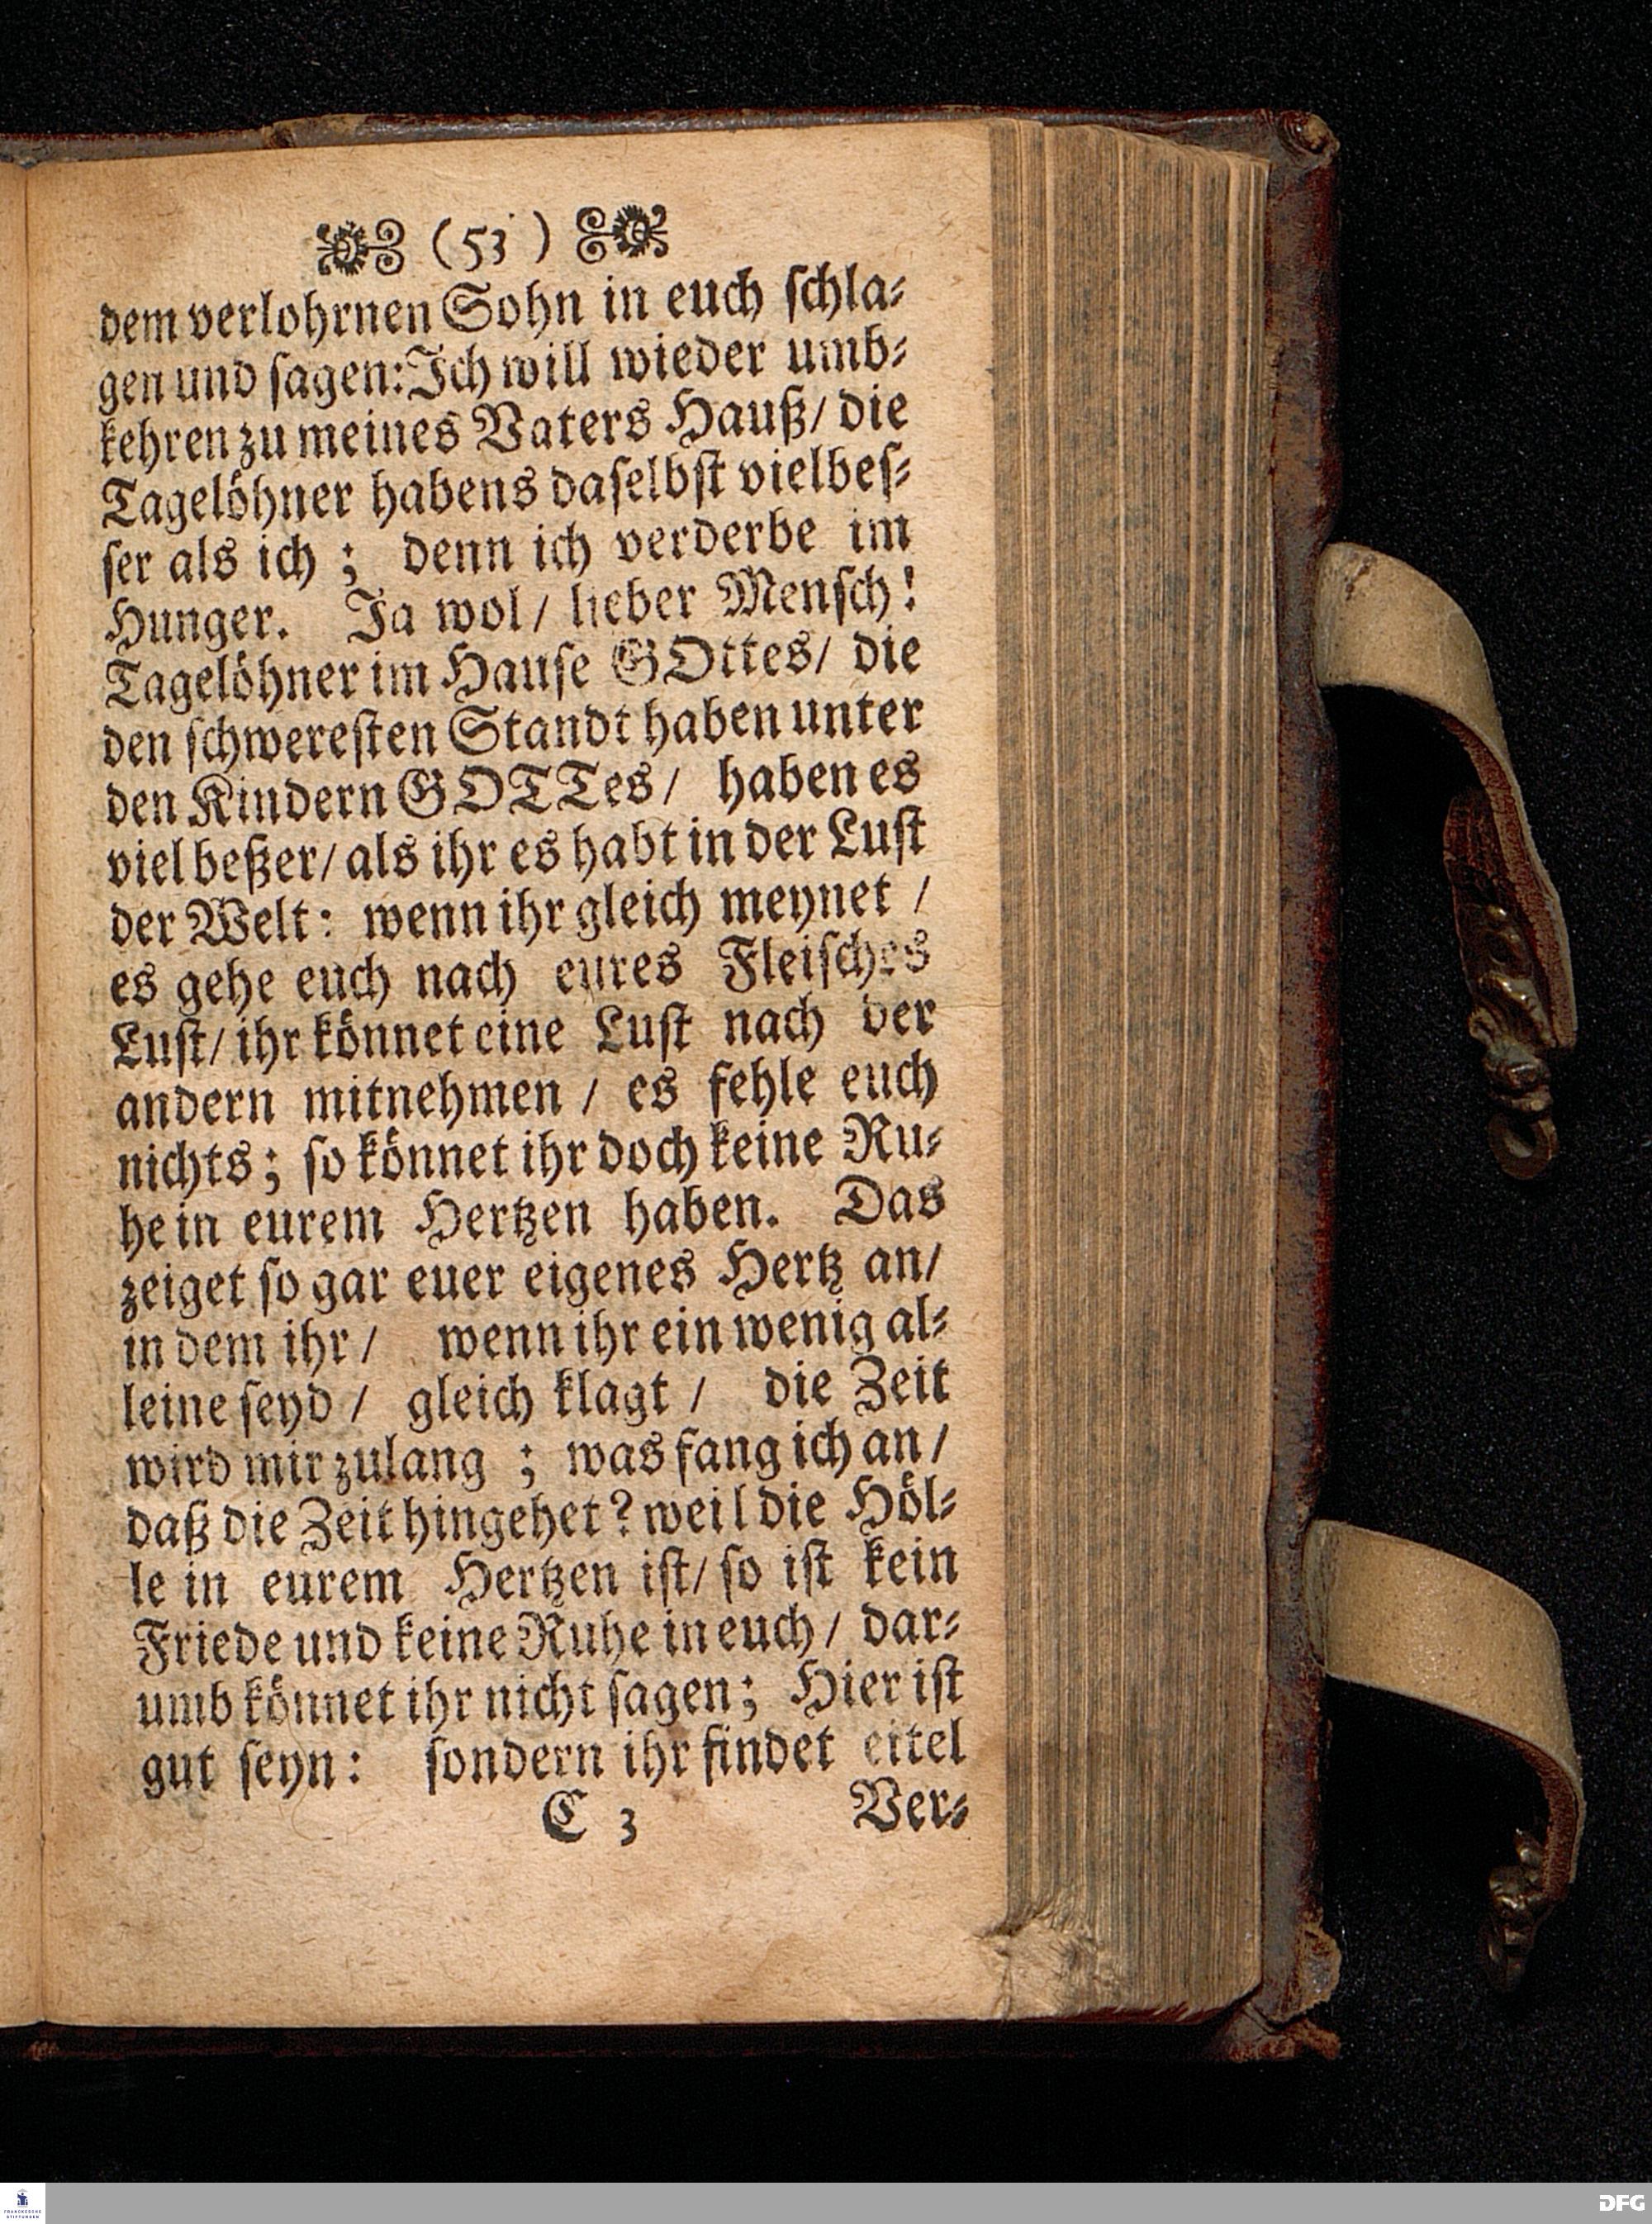 (53)
dem verlohrnen Sohn in euch ſchla⸗
gen und ſagen: Ich will wieder umb⸗
kehren zu meines Vaters Hauß/ die
Tagelöhner habens daſelbſt viel beſ⸗
ſer als ich; denn ich verderbe im
Hunger. Ja wol/ lieber Menſch!
Tagelöhner im Hauſe GOttes/ die
den ſchwereſten Standt haben unter
den Kindern GOTTes/ haben es
viel beßer/ als ihr es habt in der Luſt
der Welt: wenn ihr gleich meynet/
es gehe euch nach eures Fleiſches
Luſt/ ihr könnet eine Luſt nach der
andern mitnehmen/ es fehle euch
nichts; ſo könnet ihr doch keine Ru⸗
he in eurem Hertzen haben. Das
zeiget ſo gar euer eigenes Hertz an/
in dem ihr/ wenn ihr ein wenig al⸗
leine ſeyd/ gleich klagt/ die Zeit
wird mir zulang; was fang ich an/
daß die Zeit hingehet? weil die Höl⸗
le in eurem Hertzen iſt/ ſo iſt kein
Friede und keine Ruhe in euch/ dar⸗
umb könnet ihr nicht ſagen; Hier iſt
gut ſeyn: ſondern ihr findet eitel
C 3 Ver⸗
FRANCKESCHE
STIFTUNGEN
DFG